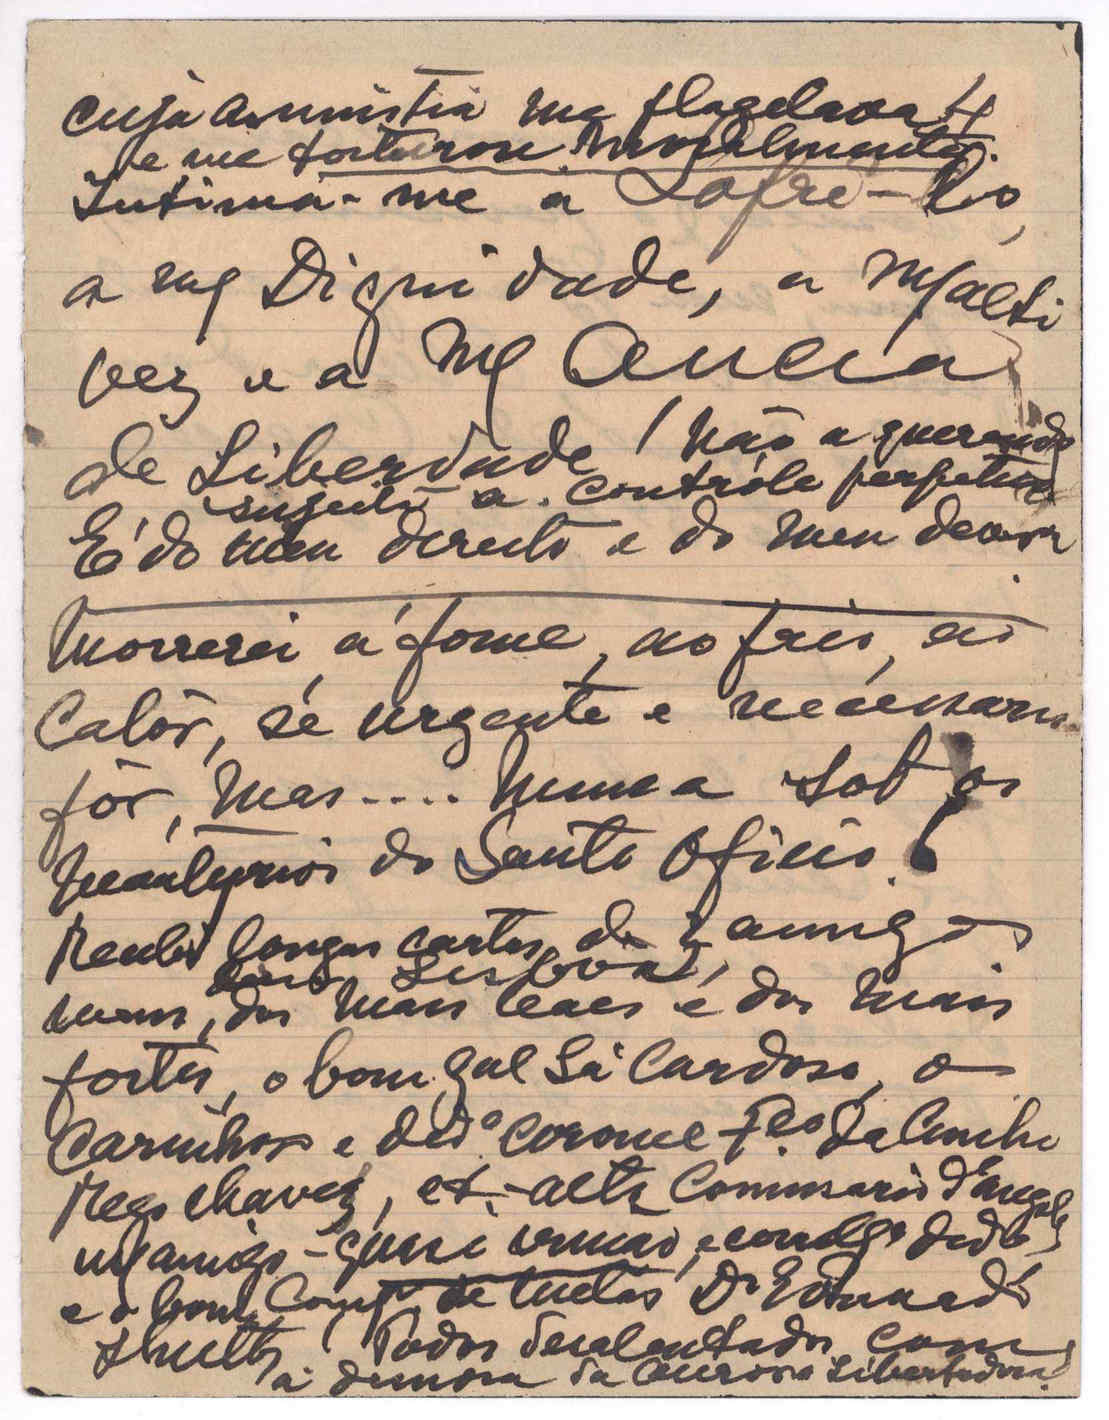 cuja amnistia me flagelava
e me torturou moralmente.
Intima-me a Sofre-lo,
a mª Dignidade, a mª alti
vez e a mª Ancia
de Liberdade! não a querendo
sujeita a controle
É do meu direito e do meu dever
Morrerei á fome, ao frio, ao
Calôr, se urgente e necessario
fôr, mas.... Nunca sob os
do Santo Oficio!
Recebi longas cartas de 3 amigos
de Lisboa,
meus, dos mais leaes e dos mais
fortes, o bom gal Sá Cardoso, o
Carinhoso e dedº coronel Fco da Cunha
Rego Chaves, ex-alto Commissario d'Angola
mº amigo-quasi irmão,
e o bom Compº de luctas Dr Eduardo
Todos desalentados com
a demora da Aurora Libertadora!